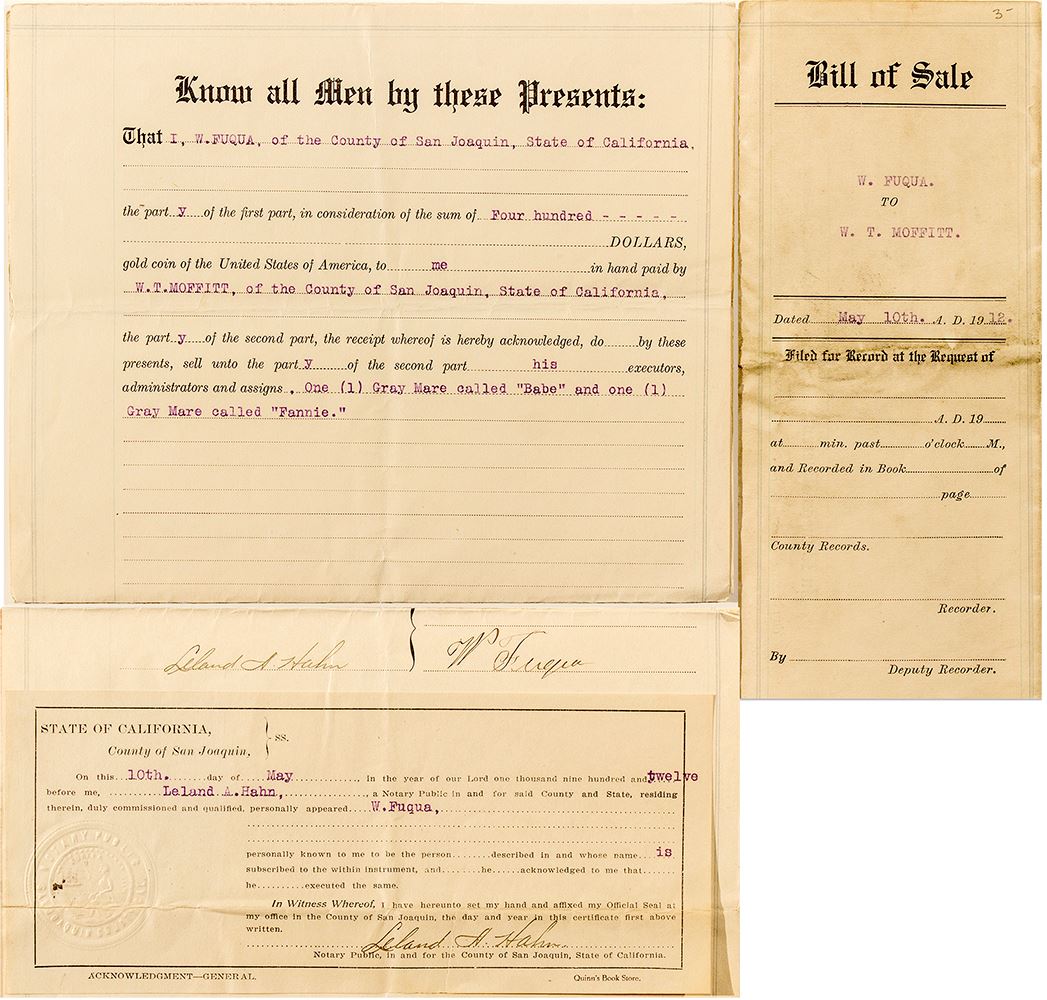 Know all Men by these Presents:
That I, W.FUQUA, of the County of San Joaquin, State of California,
the part y of the first part, in consideration of the sum of Four hundred - - - - -
DOLLARS,
gold coin of the United States of America, to me in hand paid by
W.T.MOFFITT, of the County of San Joaquin, State of California,
the part y of the second part, the receipt whereof is hereby acknowledged, do by these
presents, sell unto the part y of the second part his executors,
administrators and assigns, One (1) Gray Mare called "Babe" and one (1)
Gray Mare called "Fannie."
3-
Bill of Sale
W. FUQUA.
TO
W. T. MOFFITT.
Dated May 10th. A. D. 19 12.
Filed for Record at the Request of
A. D. 19
at min. past o'clock M.,
and Recorded in Book of
page
County Records.
Recorder.
By
Deputy Recorder.
Leland A. Hahn } W Fuqua
STATE OF CALIFORNIA,
County of San Joaquin, } ss.
On this 10th. day of May, in the year of our Lord one thousand nine hundred and twelve
before me, Leland A.Hahn, a Notary Public in and for said County and State, residing
therein, duly commissioned and qualified, personally appeared W.Fuqua,
personally known to me to be the person described in and whose name is
subscribed to the within instrument, and he acknowledged to me that
he executed the same.
In Witness Whereof, I have hereunto set my hand and affixed my Official Seal at
my office in the County of San Joaquin, the day and year in this certificate first above
written.
Leland A. Hahn
Notary Public, in and for the County of San Joaquin, State of California.
ACKNOWLEDGMENT—GENERAL.
Quinn's Book Store.